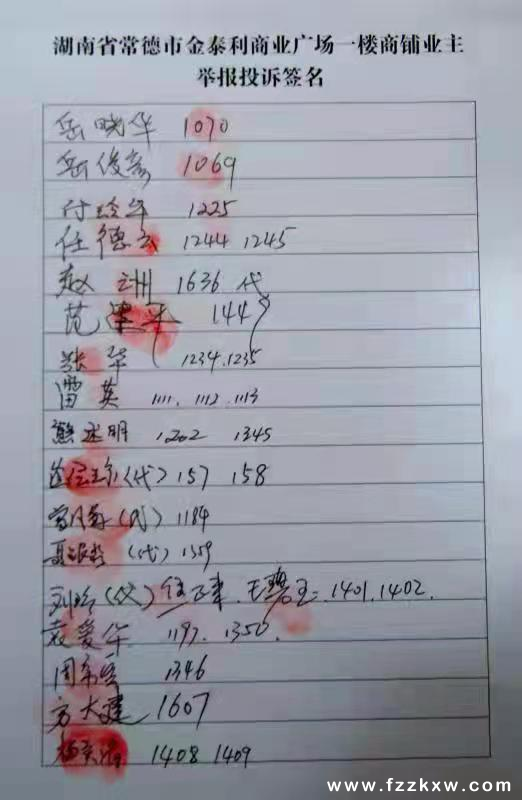 湖南省常德市金泰利商业广场一楼商铺业主
举报投诉签名
岳晓华 1070
岳俊彦 1069
付玲午 1225
任德云 1244 1245
赵主洲 1636 代
范 144
张华 1234.1235
雷英 1111. 1112. 1113
熊丞明 1202 1345
(代) 157 158
(代) 1184
聂 (代) 1559
刘玲(代) 任 . 王碧玉 1401.1402.
袁爱华 1197. 1350.
周 1346
方大建 1607
杨 1408 1409
www.fzzkxw.com